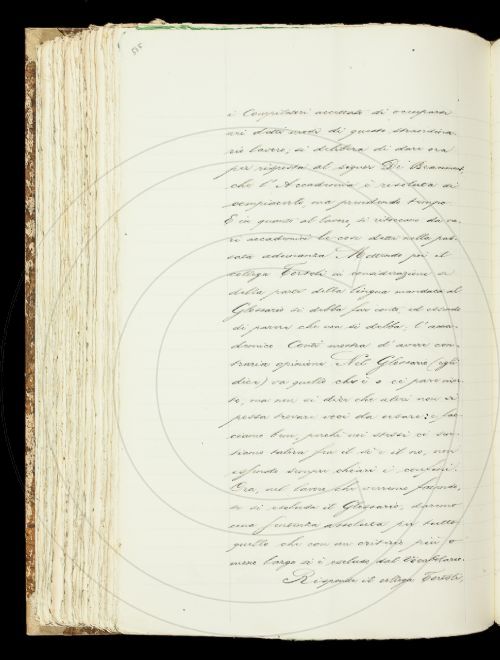 i Compilatori accettato di occuparsi
nei detti modi di questo straordina-
rio lavoro; si delibera di dare ora
per risposta al signor De Beaumont,
che l'Accademia è resoluta di
compiacerlo, ma prendendo tempo.
E in quanto al lavoro, si ritoccano da va-
ri accademici le cose dette nella pas-
sata adunanza. Mettendo poi il
collega Tortoli in considerazione se
della parte della lingua mandata al
Glossario si debba far conto, ed essendo
di parere che non si debba; l'acca-
demico Conti mostra d'avere con-
traria opinione. Nel Glossario (egli
dice) va quello che è o ci par mor-
to, ma non si dice che altri non vi
possa trovare voci da usare: e fac-
ciamo bene, perchè noi stessi ci sen-
tiamo talora fra il sì e il no, non
essendo sempre chiari i confini.
Ora, nel lavoro che verremo facendo,
se si esclude il Glossario, daremo
una sentenza assoluta su tutto
quello che con un criterio più o
meno largo si è escluso dal Vocabolario.
Risponde il collega Tortoli,